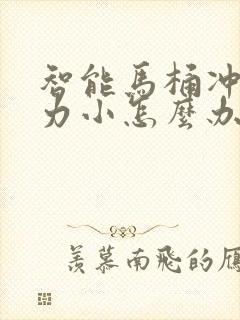 智能馬桶冲
力小怎麼办
羡慕南飛的雁